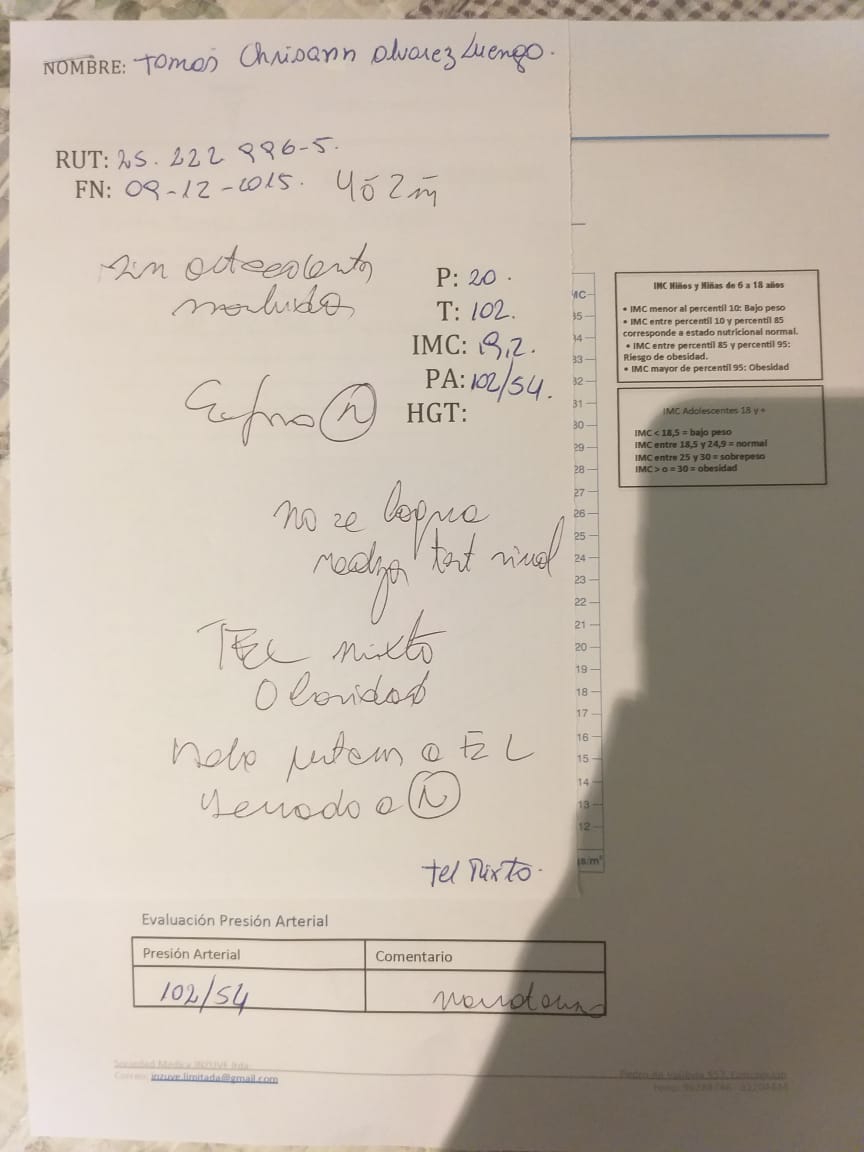 NOMBRE: Tomas Chrisann Alvarez Luengo.
RUT: 25. 222 996-5.
FN: 09-12-2015. 4 ō 2 m̄
Sin antecedentes
morbidos
P: 20.
T: 102.
IMC: 19,2.
PA: 102/54.
HGT:
Ex fisico (N)
no se logra
realizar test visual
TEL mixto
Obesidad
TEL
a (N)
tel Mixto.
MC
35
34
33
32
31
30
29
28
27
26
25
24
23
22
21
20
19
18
17
16
15
14
13
12
gs/m²
IMC Niños y Niñas de 6 a 18 años
• IMC menor al percentil 10: Bajo peso
• IMC entre percentil 10 y percentil 85
corresponde a estado nutricional normal.
• IMC entre percentil 85 y percentil 95:
Riesgo de obesidad.
• IMC mayor de percentil 95: Obesidad
IMC Adolescentes 18 y +
IMC < 18,5 = bajo peso
IMC entre 18,5 y 24,9 = normal
IMC entre 25 y 30 = sobrepeso
IMC > o = 30 = obesidad
Evaluación Presión Arterial
Presión Arterial Comentario
102/54 normotenso
Sociedad Medica INZUVE ltda
Correo: inzuve.limitada@gmail.com
Pedro de Valdivia 557, Concepción